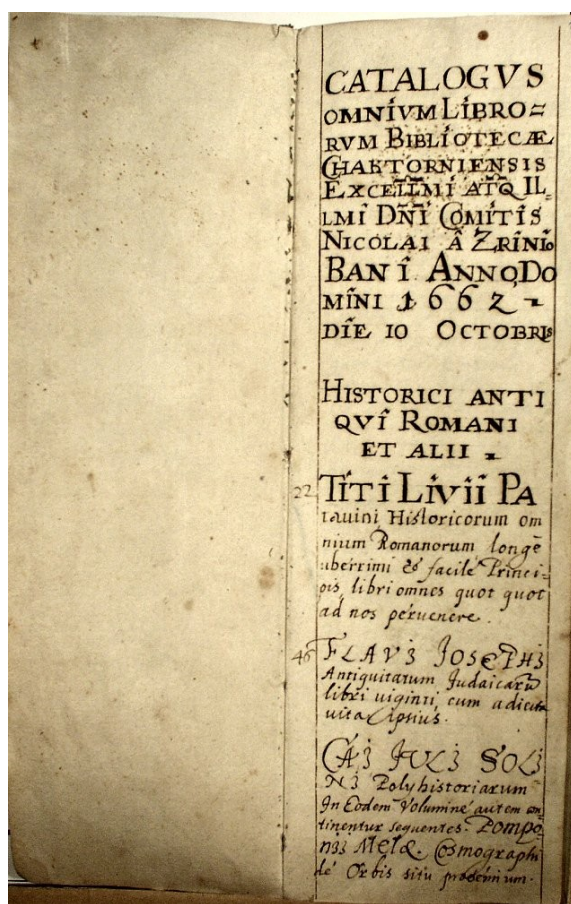 CATALOGVS
OMNIVM LIBRO=
RVM BIBLIOTECÆ
CHAKTORNIENSIS
EXCELLMI ATQ IL-
LMI DÑI COMITIS
NICOLAI Â ZRINIO
BANI ANNO DO
MINI 1662
DIE 10 OCTOBRIS
HISTORICI ANTI
QVI ROMANI
ET ALII
22 TITI LIVII PA
tauini Historicorum om
nium Romanorum longè
uberrimi & facile Princi-
pis, libri omnes quot quot
ad nos peruenere.
46 FLAVI JOSEPHI
Antiquitatum Judaicarū
libri uiginti, cum adiecta
uita Ipsius.
CAI JULI SOLI
NI Polyhistoriarum
In Eodem Volumine autem con
tinentur sequentes. Pompo
nii Melæ. Cosmographi
de Orbis situ proemium.